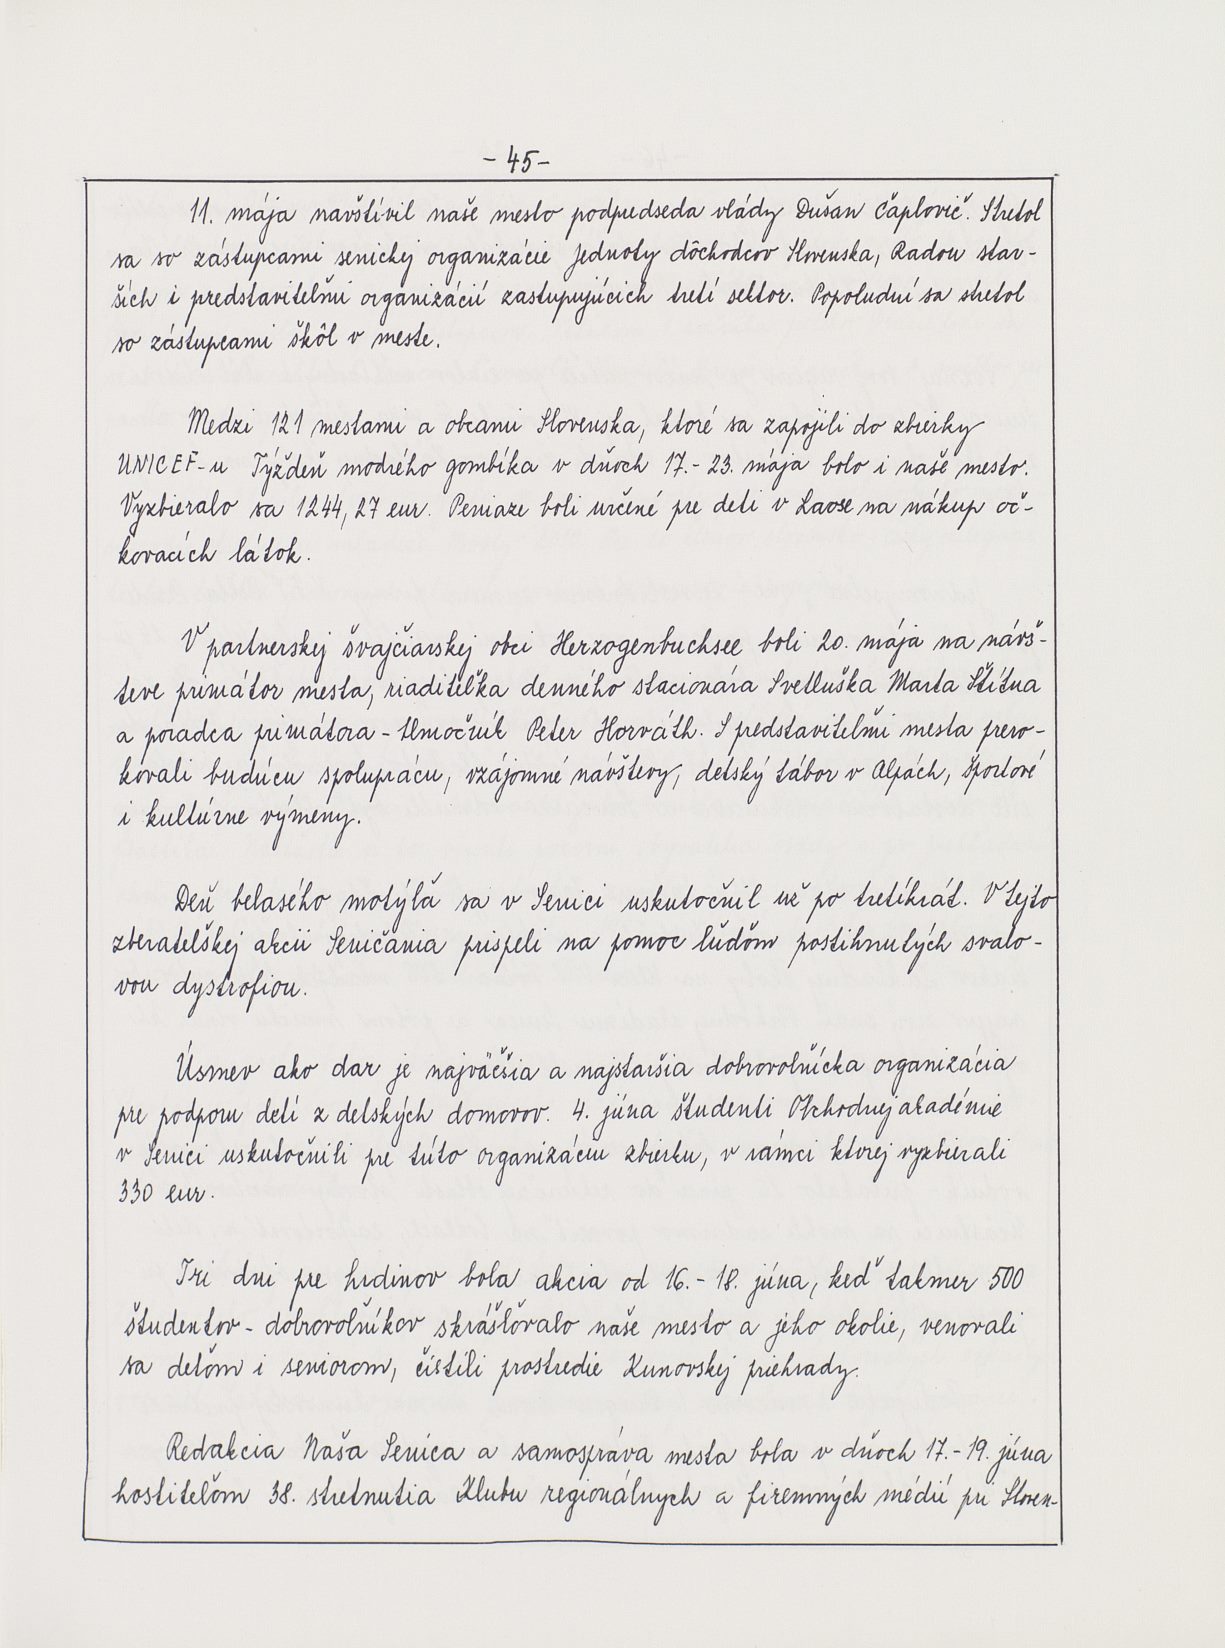 - 45 -
11. mája navštívil naše mesto podpredseda vlády Dušan Čaplovič. Stretol
sa so zástupcami senickej organizácie Jednoty dôchodcov Slovenska, Radou star-
ších i predstaviteľmi organizácií zastupujúcich tretí sektor. Popoludní sa stretol
so zástupcami škôl v meste.
Medzi 121 mestami a obcami Slovenska, ktoré sa zapojili do zbierky
UNICEF-u Týždeň modrého gombíka v dňoch 17.- 23. mája bolo i naše mesto.
Vyzbieralo sa 1244,27 eur. Peniaze boli určené pre deti v Laose na nákup oč-
kovacích látok.
V partnerskej švajčiarskej obci Herzogenbuchsee boli 20. mája na návš-
teve primátor mesta, riaditeľka denného stacionára Svetluška Marta Štítna
a poradca primátora - tlmočník Peter Horváth. S predstaviteľmi mesta prero-
kovali budúcu spoluprácu, vzájomné návštevy, detský tábor v Alpách, športové
i kultúrne výmeny.
Deň belasého motýľa sa v Senici uskutočnil už po tretíkrát. V tejto
zberateľskej akcii Seničania prispeli na pomoc ľuďom postihnutých svalo-
vou dystrofiou.
Úsmev ako dar je najväčšia a najstaršia dobrovoľnícka organizácia
pre podporu detí z detských domovov. 4. júna študenti Obchodnej akadémie
v Senici uskutočnili pre túto organizáciu zbierku, v rámci ktorej vyzbierali
330 eur.
Tri dni pre hrdinov bola akcia od 16.- 18. júna, keď takmer 500
študentov - dobrovoľníkov skrášľovalo naše mesto a jeho okolie, venovali
sa deťom i seniorom, čistili prostredie Kunovskej priehrady.
Redakcia Naša Senica a samospráva mesta bola v dňoch 17.- 19. júna
hostiteľom 38. stretnutia Klubu regionálnych a firemných médií pri Sloven-